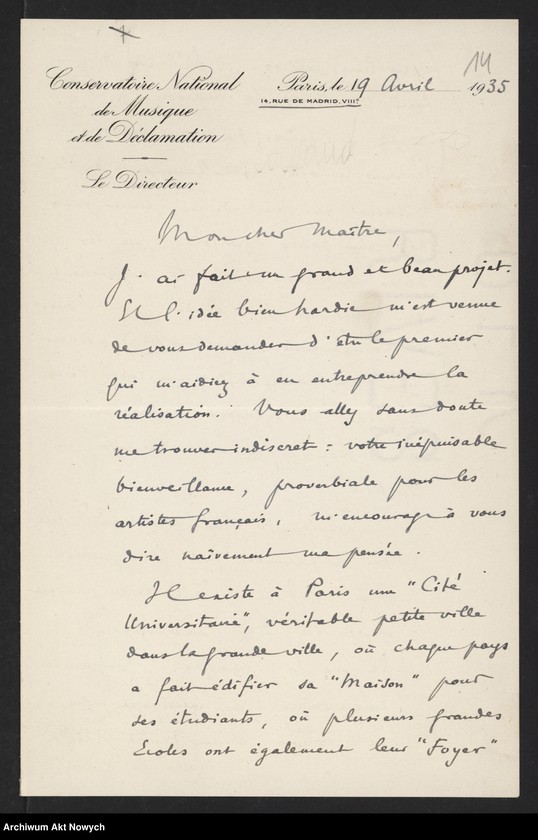 14
Conservatoire National
de Musique
et de Déclamation
Le Directeur
Paris, le 19 Avril 1935
14, RUE DE MADRID, VIIIe
Mon cher Maître,
J'ai fait un grand et beau projet.
Et l'idée bien hardie m'est venue
de vous demander d'être le premier
qui m'aidiez à en entreprendre la
réalisation. Vous allez sans doute
me trouver indiscret : votre inépuisable
bienveillance, proverbiale pour les
artistes français, m'encourage à vous
dire naïvement ma pensée.
Il existe à Paris une "Cité
Universitaire", véritable petite ville
dans la grande ville, où chaque pays
a fait édifier sa "Maison" pour
ses étudiants, où plusieurs grandes
Ecoles ont également leur "Foyer"
Archiwum Akt Nowych